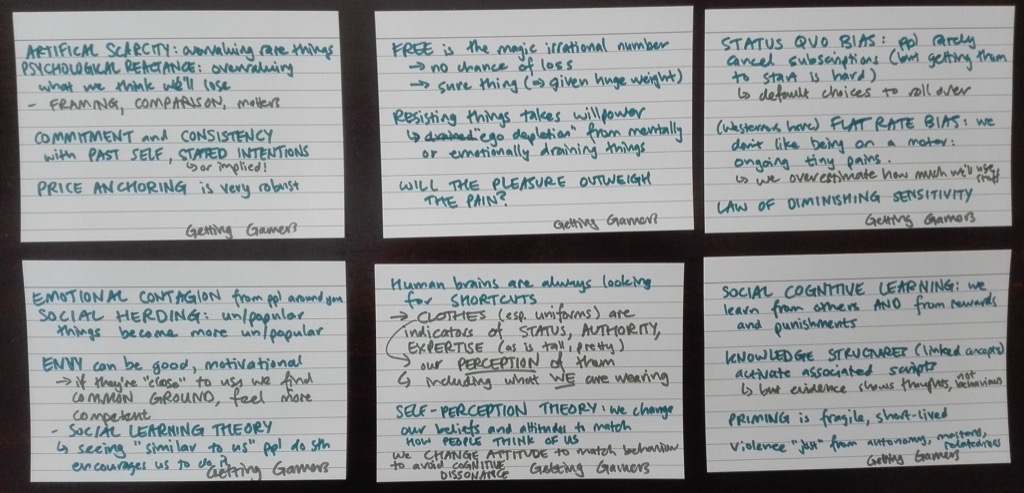 ARTIFICAL SCARCITY: overvaluing rare things
PSYCHOLOGICAL REACTANCE: overvaluing
what we think we'll lose
- FRAMING, COMPARISON, matters
COMMITMENT and CONSISTENCY
with PAST SELF, STATED INTENTIONS
↳ or implied!
PRICE ANCHORING is very robust
Getting Gamers
FREE is the magic irrational number
→ no chance of loss
→ sure thing (⇒ given huge weight)
Resisting things takes willpower
↳ drained "ego depletion" from mentally
or emotionally draining things
WILL THE PLEASURE OUTWEIGH
THE PAIN?
Getting Gamers
STATUS QUO BIAS: ppl rarely
cancel subscriptions (but getting them
to start is hard)
↳ default choices to roll over
(Westerners have) FLAT RATE BIAS: we
don't like being on a meter:
ongoing tiny pains.
↳ we overestimate how much we'll use
stuff
LAW OF DIMINISHING SENSITIVITY
Getting Gamers
EMOTIONAL CONTAGION from ppl around you
SOCIAL HERDING: un/popular
things become more un/popular
ENVY can be good, motivational
→ if they're "close" to us, we find
COMMON GROUND, feel more
competent
- SOCIAL LEARNING THEORY
↳ seeing "similar to us" ppl do sth
encourages us to do it
Getting Gamers
Human brains are always looking
for SHORTCUTS
→ CLOTHES (esp. uniforms) are
indicators of STATUS, AUTHORITY,
EXPERTISE (as is tall, pretty)
→ our PERCEPTION of them
↳ including what WE are wearing
SELF-PERCEPTION THEORY: we change
our beliefs and attitudes to match
HOW PEOPLE THINK OF US
WE CHANGE ATTITUDE to match behaviour
to avoid COGNITIVE
DISSONANCE
Getting Gamers
SOCIAL COGNITIVE LEARNING: we
learn from others AND from rewards
and punishments
KNOWLEDGE STRUCTURES (linked concepts)
activate associated scripts
↳ but evidence shows thoughts, not
behaviours
PRIMING is fragile, short-lived
Violence "joy" from autonomy, mastery,
relatedness
Getting Gamers